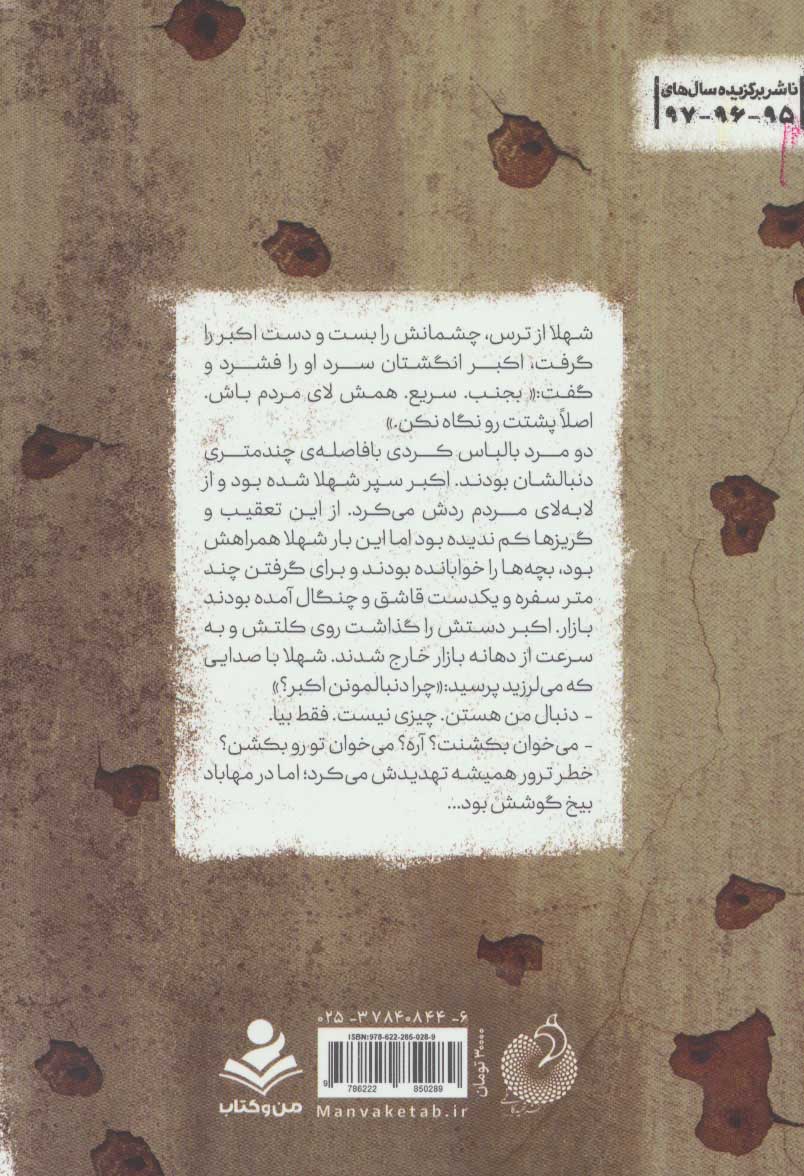 ناشر برگزیده سال‌های
۹۵-۹۶-۹۷
شهلا از ترس، چشمانش را بست و دست اکبر را
گرفت، اکبر انگشتان سرد او را فشرد و
گفت:« بجنب. سریع. همش لای مردم باش.
اصلاً پشتت رو نگاه نکن.»
دو مرد بالباس کردی بافاصله‌ی چندمتری
دنبالشان بودند. اکبر سپر شهلا شده بود و از
لابه‌لای مردم ردش می‌کرد. از این تعقیب و
گریزها کم ندیده بود اما این بار شهلا همراهش
بود، بچه‌ها را خوابانده بودند و برای گرفتن چند
متر سفره و یکدست قاشق و چنگال آمده بودند
بازار. اکبر دستش را گذاشت روی کلتش و به
سرعت از دهانه بازار خارج شدند. شهلا با صدایی
که می‌لرزید پرسید:«چرا دنبالمونن اکبر؟»
- دنبال من هستن. چیزی نیست. فقط بیا.
- می‌خوان بکشنت؟ آره؟ می‌خوان تو رو بکشن؟
خطر ترور همیشه تهدیدش می‌کرد؛ اما در مهاباد
بیخ گوشش بود...
۰۲۵-۳۷۸۴۰۸۴۴-۶
ISBN:978-622-285-028-9
9 786222 850289
Manvaketab.ir
۳۰۰۰۰ تومان
من و کتاب